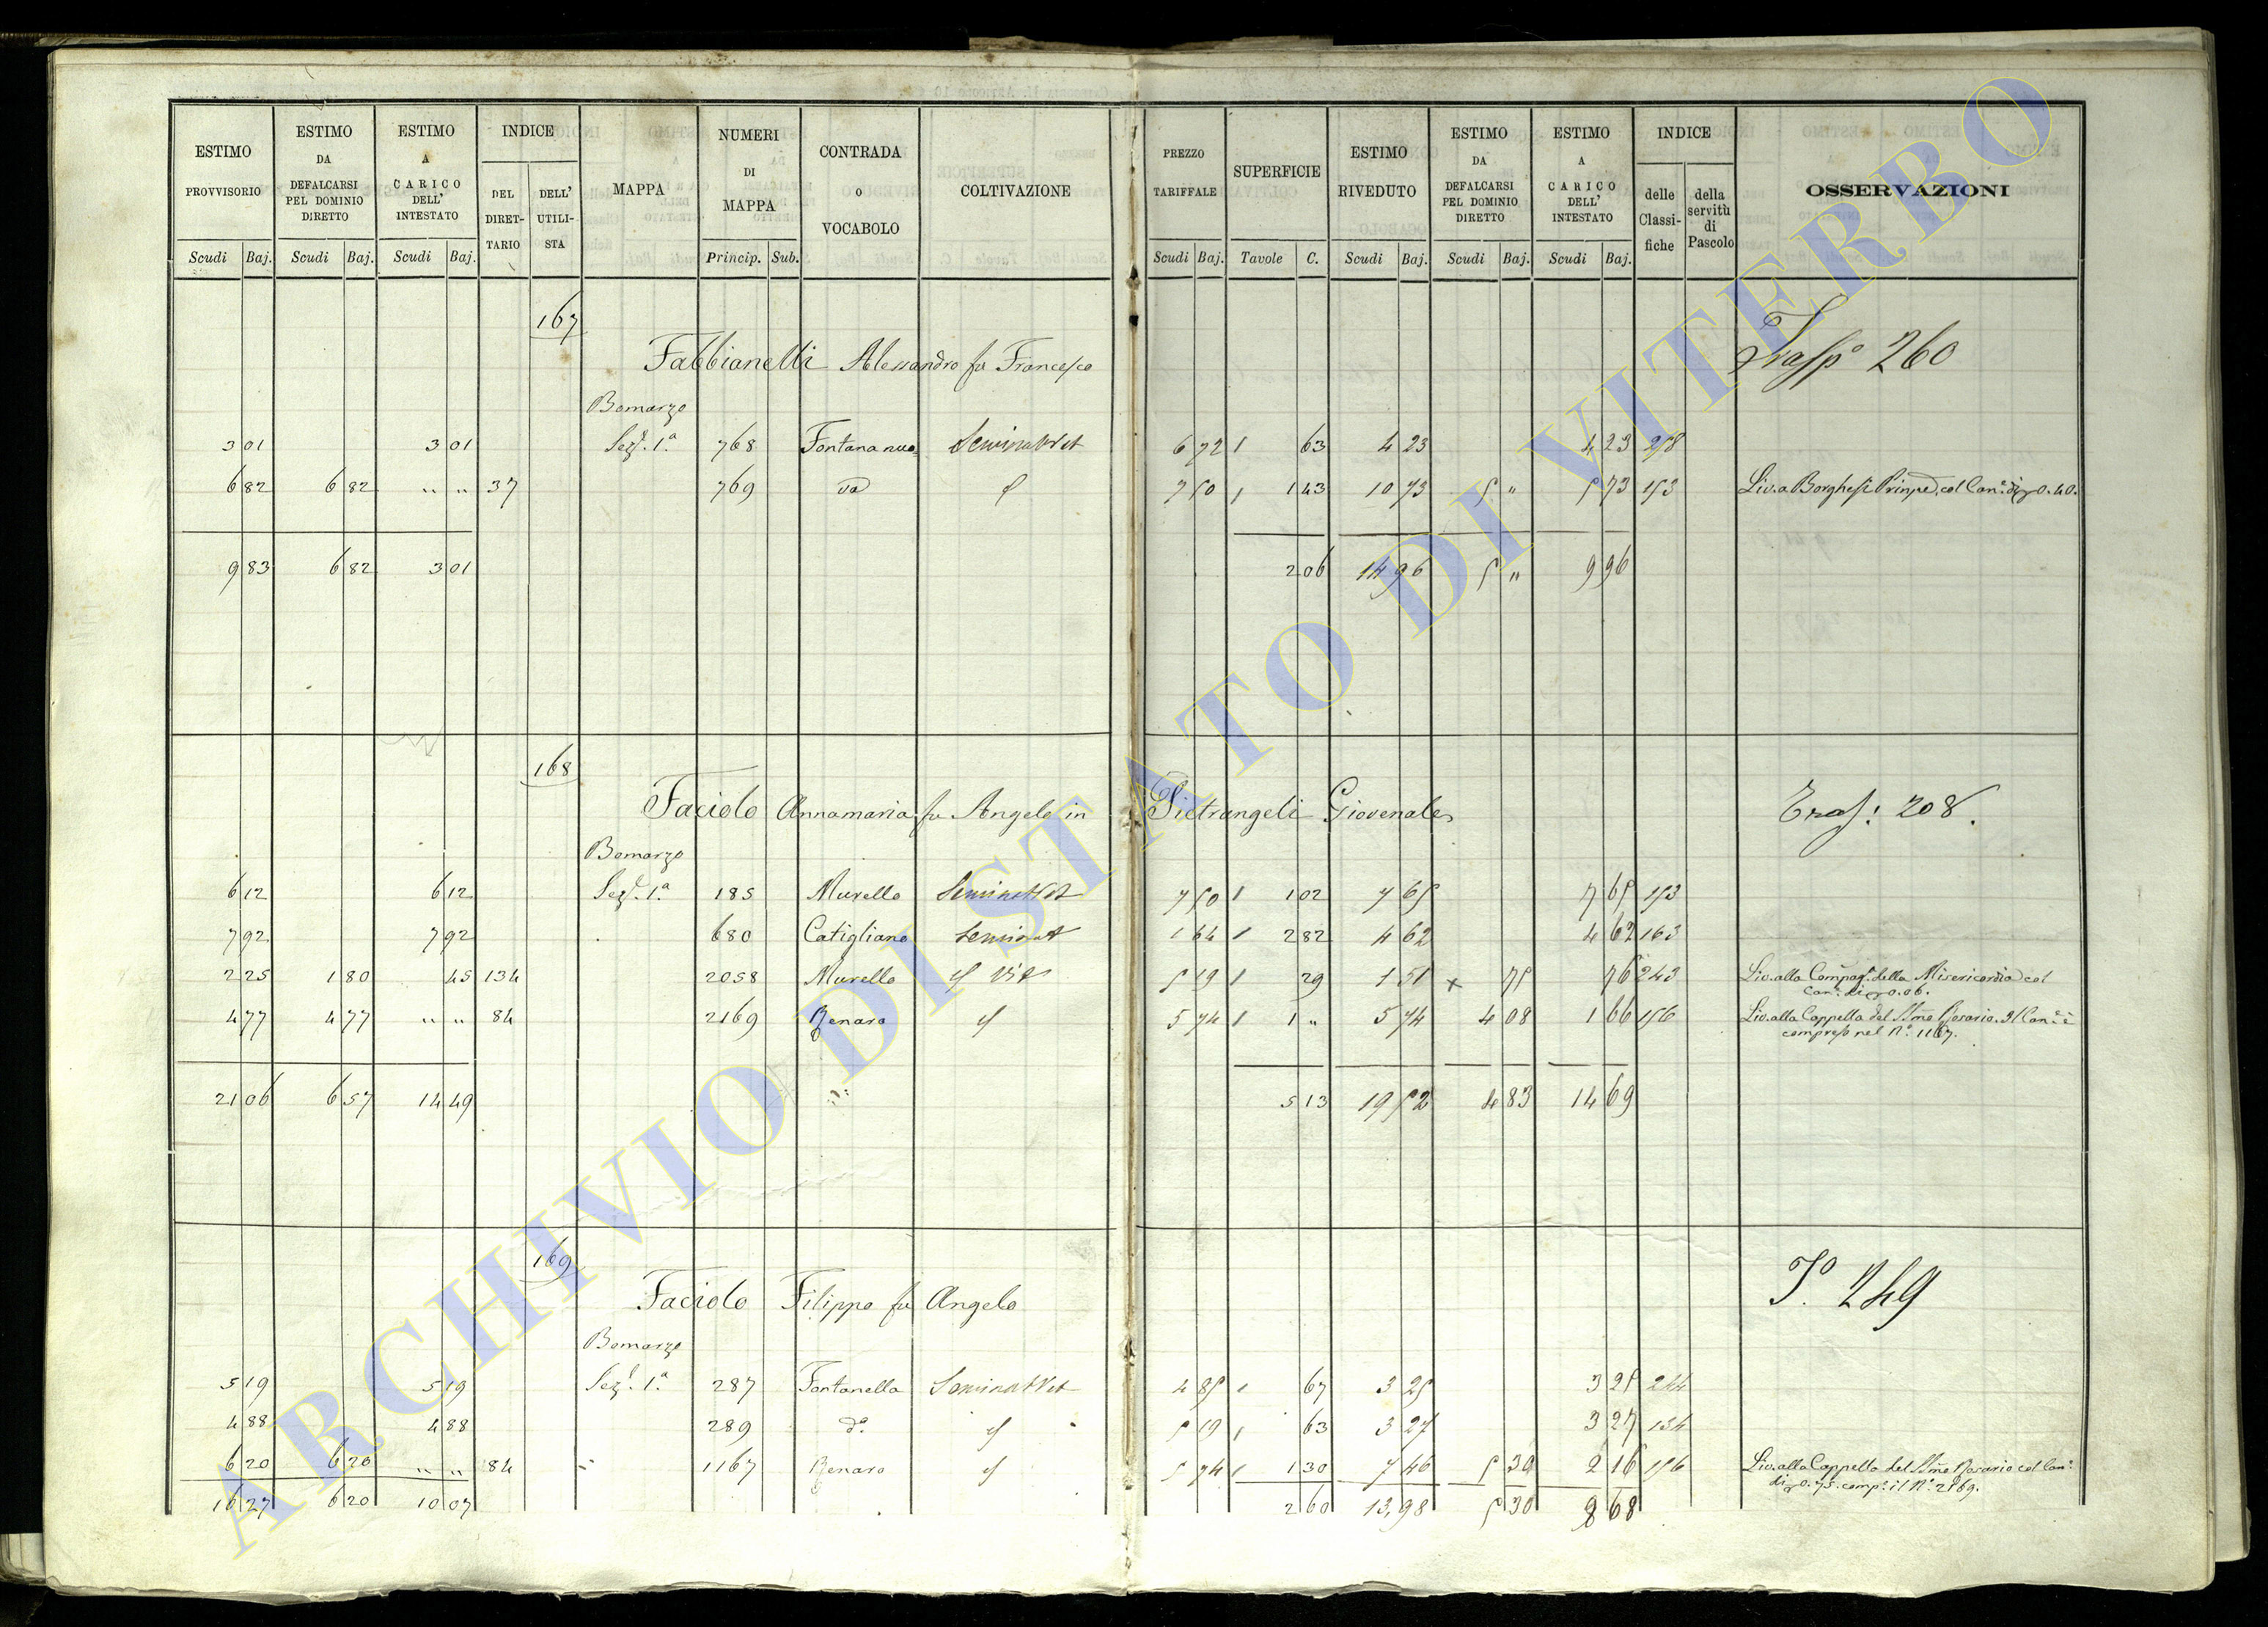 ESTIMO PROVVISORIO | ESTIMO DA DEFALCARSI PEL DOMINIO DIRETTO | ESTIMO A CARICO DELL' INTESTATO | INDICE DEL DIRETTARIO | DELL' UTILISTA | MAPPA | NUMERI DI MAPPA | CONTRADA O VOCABOLO | COLTIVAZIONE | PREZZO TARIFFALE | SUPERFICIE | ESTIMO RIVEDUTO | ESTIMO DA DEFALCARSI PEL DOMINIO DIRETTO | ESTIMO A CARICO DELL' INTESTATO | INDICE delle Classifiche | della servitù di Pascolo | OSSERVAZIONI
Scudi Baj. Scudi Baj. Scudi Baj. Princip. Sub. Scudi Baj. Tavole C. Scudi Baj. Scudi Baj. Scudi Baj.
167
Fabbianelli Alessandro fu Francesco Trasp° 260
Bomarzo
3 01 3 01 Sez.e 1.a 768 Fontana nuo= Seminat Vit 6 72 1 63 4 23 4 23 258
6 82 6 82 " " 37 769 va 7 50 1 1 43 10 73 5 " 5 73 153 Liv. a Borghese Principe col Can.e di 0.40.
9 83 6 82 3 01 2 06 14 96 5 " 9 96
168
Faciolo Annamaria fu Angelo in Pietrangeli Giovenale Tras: 208.
Bomarzo
6 12 6 12 Sez.e 1.a 185 Murella Seminat Vit 7 50 1 1 02 7 65 7 65 153
7 92 7 92 680 Catigliano Seminat 1 64 1 2 82 4 62 4 62 163
2 25 1 80 45 134 2058 Murella Vit 5 19 1 29 1 51 x 75 76 243 Liv. alla Compag. della Misericordia col
Can.e di 0.06.
4 77 4 77 " " 84 2169 Renara 5 74 1 1 " 5 74 4 08 1 66 156 Liv. alla Cappella del SSmo Rosario. Il Can.e è
compreso nel N.° 1167.
21 06 6 57 14 49 5 13 19 52 4 83 14 69
169
Faciolo Filippo fu Angelo T.° 249
Bomarzo
5 19 5 19 Sez.e 1.a 287 Fontanella Seminat Vit 4 85 1 67 3 25 3 25 244
4 88 4 88 289 d.a 5 19 1 63 3 27 3 27 134
6 20 6 20 " " 84 1167 Renara 5 74 1 1 30 7 46 5 30 2 16 156 Liv. alla Cappella del SSmo Rosario col Can.e
di 0.75. comp. il N.° 2169.
16 27 6 20 10 07 2 60 13,98 5 30 8 68
ARCHIVIO DI STATO DI VITERBO